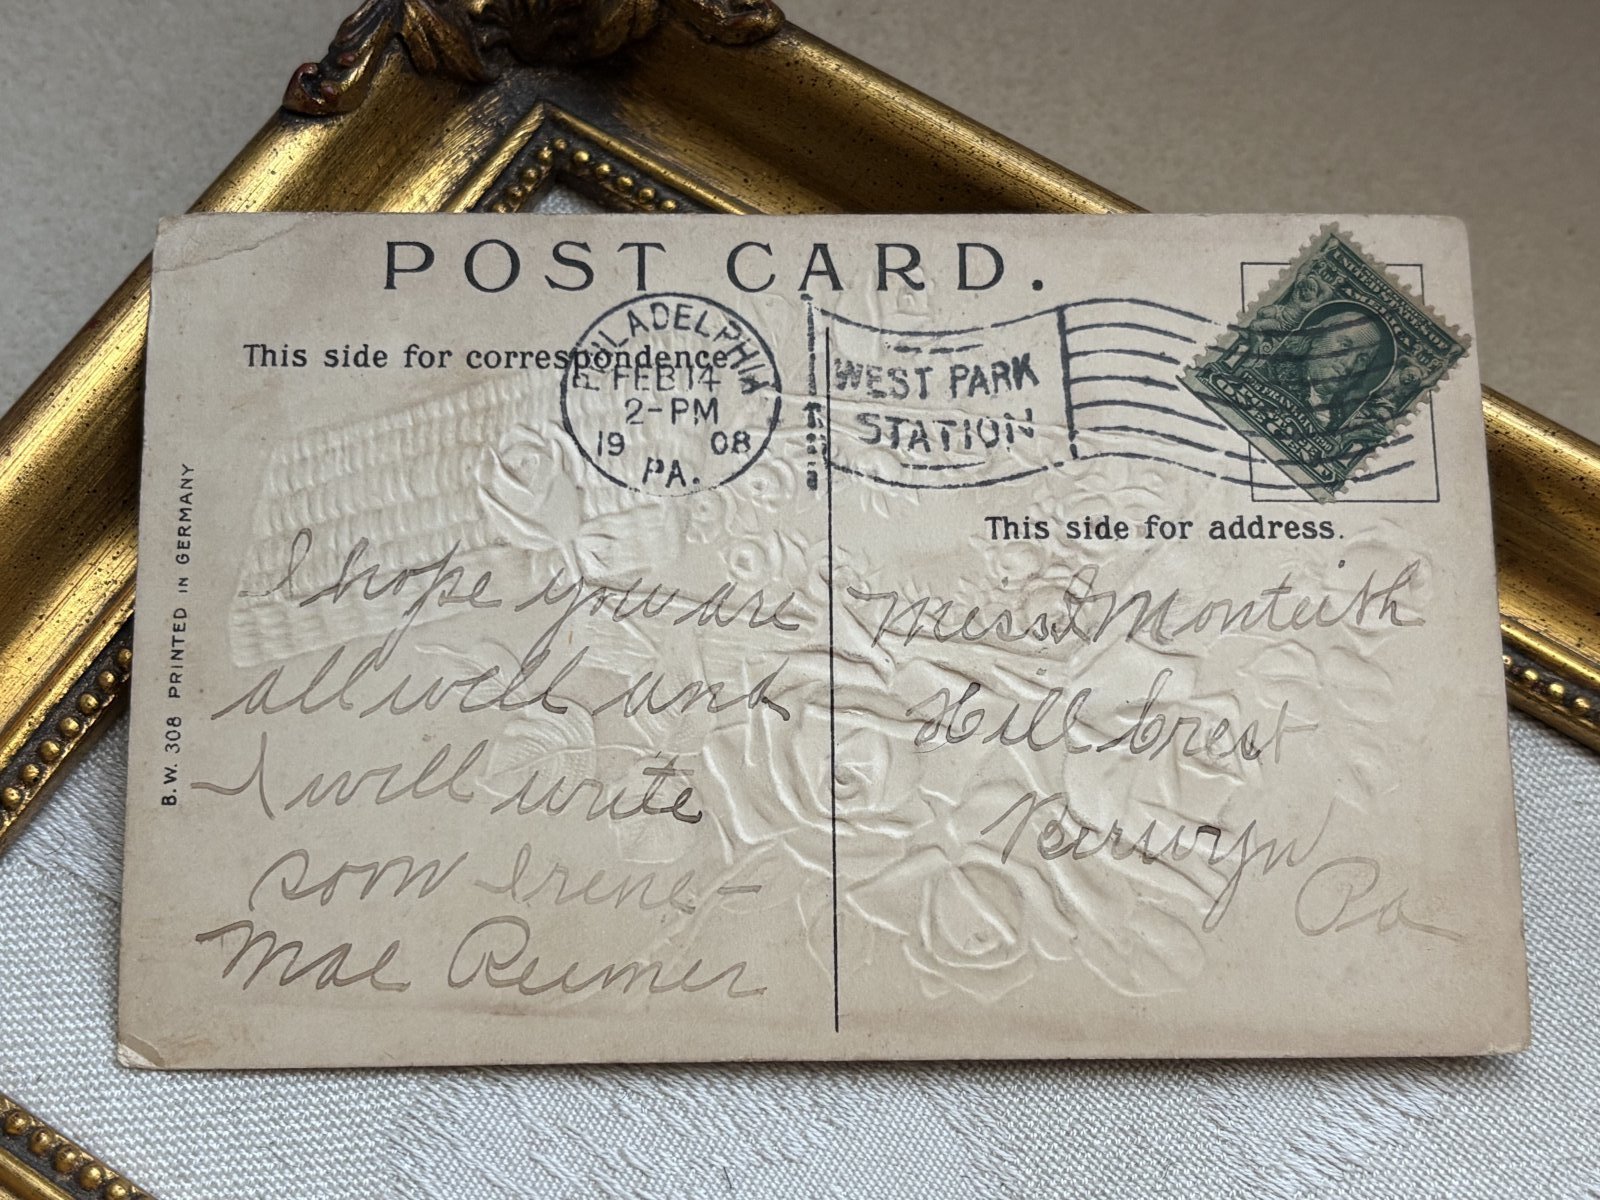 POST CARD.
This side for correspondence.
PHILADELPHIA
FEB 14
2-PM
1908
PA.
WEST PARK
STATION
This side for address.
B.W. 308 PRINTED IN GERMANY
I hope you are
all well and
I will write
soon Irene-
Mae Reemer
Miss I Monteith
Hill crest
Berwyn
Pa